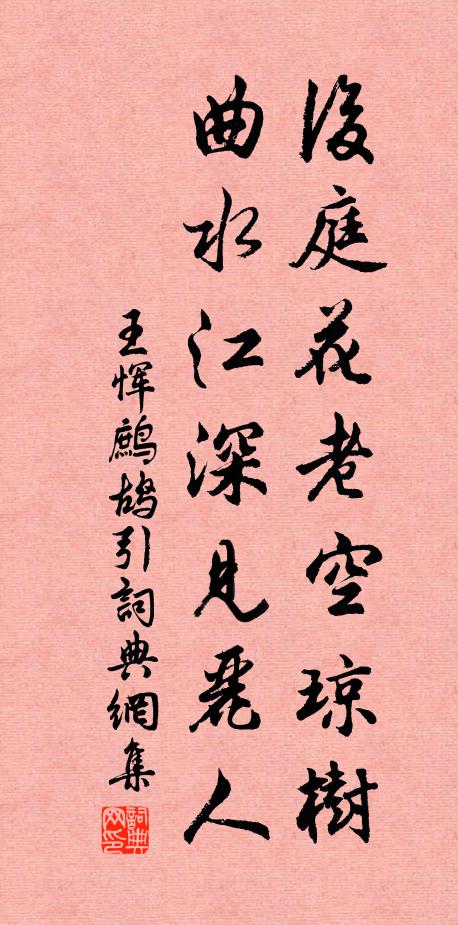 後庭花老空琼樹
曲水江深見麗人
王惲鷓鴣引詞典網集
詞典网印